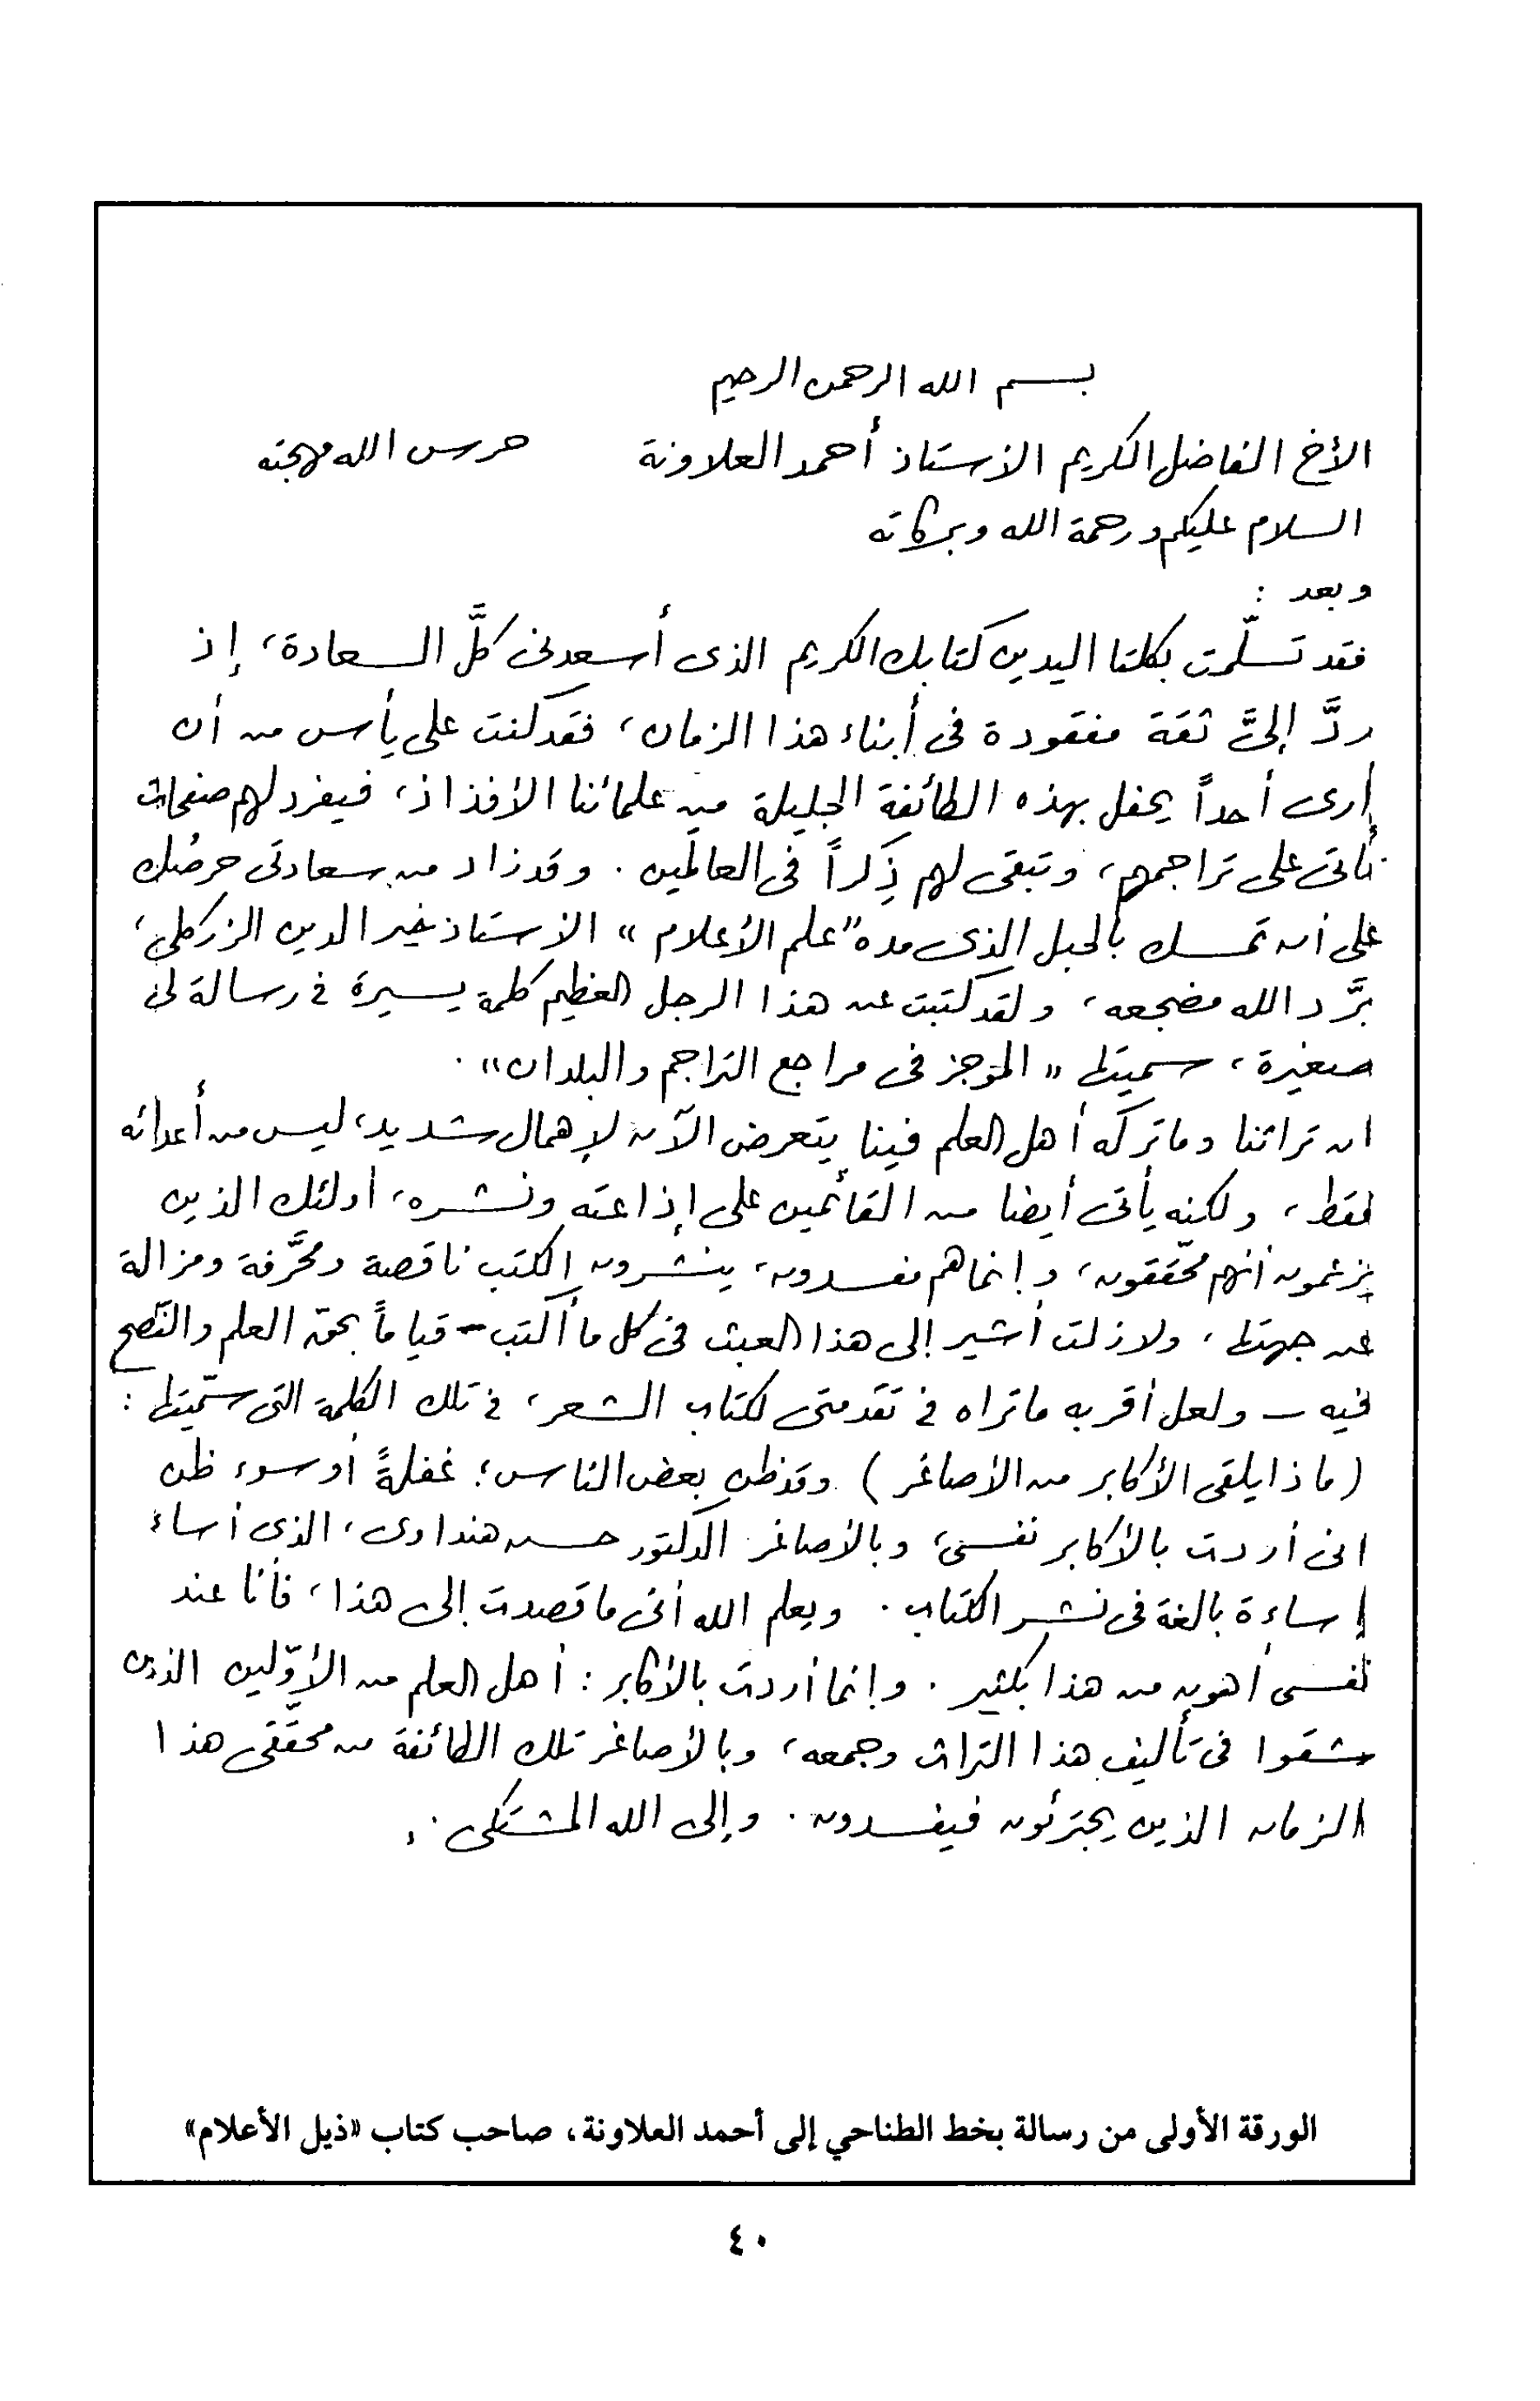 بسم الله الرحمن الرحيم
الأخ الفاضل الكريم الأستاذ أحمد العلاونة حرس الله مهجته
السلام عليكم ورحمة الله وبركاته
وبعد :
فقد تسلّمت بكلتا اليدين كتابك الكريم الذى أسعدنى كلَّ السعادة، إذ
ردَّ إلىَّ ثقة مفقودة فى أبناء هذا الزمان، فقد كنت على يأس من أن
أرى أحداً يحفل بهذه الطائفة الجليلة من علمائنا الأفذاذ، فيفرد لهم صفحات
تأتى على تراجمهم، وتبقى لهم ذِكراً فى العالَمين. وقد زاد من سعادتى حرصُك
على أن تمسك بالحبل الذى مده "علم الأعلام" الأستاذ خير الدين الزركلى،
برَّد الله مضجعه، ولقد كتبت عن هذا الرجل العظيم كلمة يسيرة فى رسالة لى
صغيرة، سميتها «الموجز فى مراجع التراجم والبلدان».
ان تراثنا وما تركه أهل العلم فينا يتعرض الآن لإهمال شديد، ليس من أعدائه
فقط، ولكنه يأتى أيضا من القائمين على إذاعته ونشره، أولئك الذين
يزعمون أنهم محقّقون، وإنما هم مفسدون، ينشرون الكتب ناقصة ومحرَّفة ومزالة
عن جهتها، ولازلت أشير إلى هذا العبث فى كل ما أكتب - قياماً بحق العلم والنّصح
فيه - ولعل أقربه ماتراه فى تقدمتى لكتاب الشعر، فى تلك الكلمة التى سمّيتها :
(ماذا يلقى الأكابر من الأصاغر) وقد ظن بعض الناس؛ غفلةً أو سوء ظن
انى أردت بالأكابر نفسى، وبالأصاغر الدكتور حسن هنداوى، الذى أساء
إساءة بالغة فى نشر الكتاب. ويعلم الله أنى ما قصدت إلى هذا، فأنا عند
نفسى أهون من هذا بكثير. وإنما أردت بالأكابر : أهل العلم من الأوّلين الذين
شقوا فى تأليف هذا التراث وجمعه، وبالأصاغر تلك الطائفة من محقّقى هذا
الزمان الذين يجترئون فيفسدون. وإلى الله المشتكى.
الورقة الأولى من رسالة بخط الطناحي إلى أحمد العلاونة، صاحب كتاب «ذيل الأعلام»
٤٠